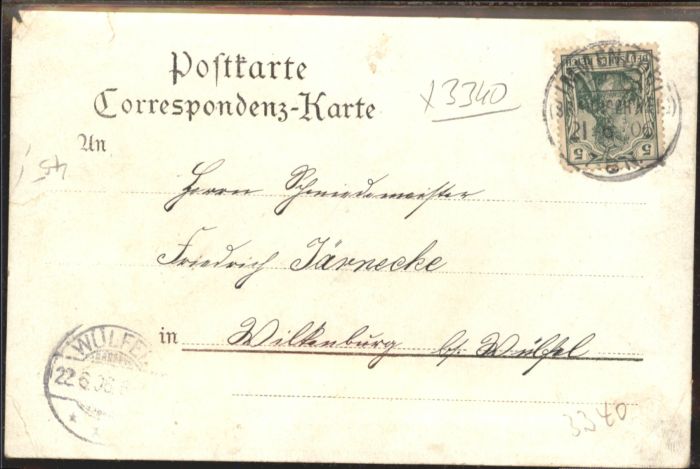 Postkarte
Correspondenz-Karte
x 3340
An
Herrn Schmiedemeister
Friedrich Järnecke
in Wilkenburg b/. Wülfel
21 6 06
5 5
WÜLFEL
22.6.06
3340